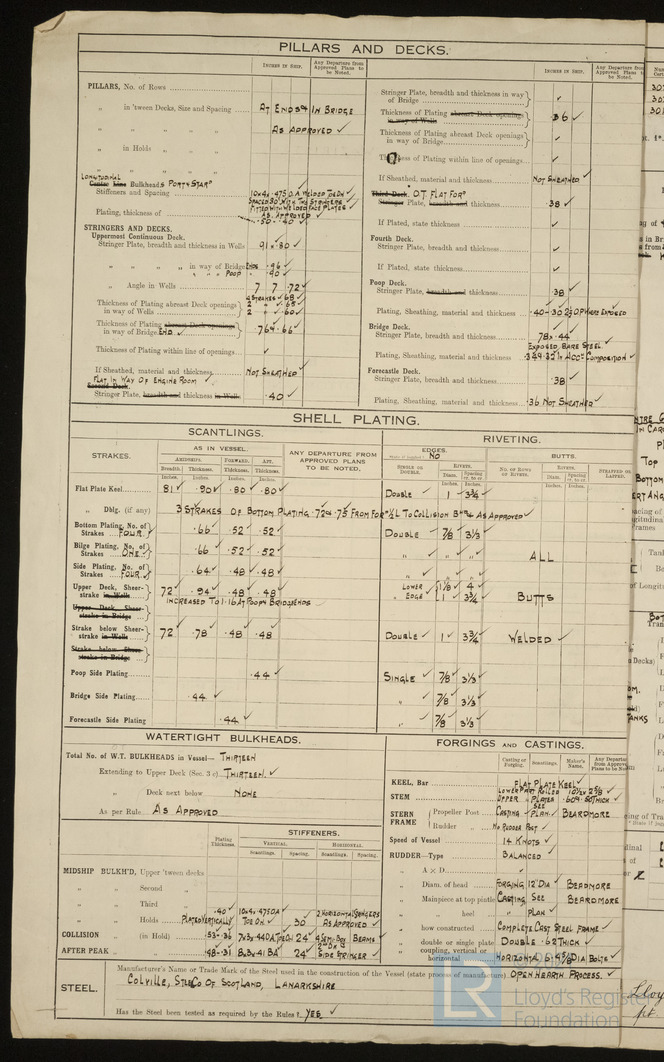 PILLARS AND DECKS.
INCHES IN SHIP.
Any Departure from Approved Plans to be Noted.
PILLARS, No. of Rows
„ in 'tween Decks, Size and Spacing AT ENDS IN BRIDGE
„ „ AS APPROVED ✓
„ in Holds „
„ „ „
LONGITUDINAL
Centre Line Bulkheads PORT & STARD
Stiffeners and Spacing
Plating, thickness of .50 .40 ✓
AS APPROVED ✓
STRINGERS AND DECKS.
Uppermost Continuous Deck.
Stringer Plate, breadth and thickness in Wells 91 × .80 ✓
„ „ „ „ in way of Bridge ENDS .96 ✓
„ „ POOP .90 ✓
„ Angle in Wells 7 7 .72 ✓
Thickness of Plating abreast Deck openings in way of Wells
4 STRAKES .68 ✓
2 „ .65 ✓
2 „ .60 ✓
Thickness of Plating abreast Deck openings in way of Bridge END .76 & .66 ✓
Thickness of Plating within line of openings ✓
If Sheathed, material and thickness NOT SHEATHED
FLAT IN WAY OF ENGINE ROOM ✓
Second Deck.
Stringer Plate, breadth and thickness in Wells .40 ✓
INCHES IN SHIP.
Any Departure from Approved Plans to be Noted.
Stringer Plate, breadth and thickness in way of Bridge ✓
Thickness of Plating abreast Deck openings in way of Wells .36 ✓
Thickness of Plating abreast Deck openings in way of Bridge ✓
Thickness of Plating within line of openings ✓
If Sheathed, material and thickness NOT SHEATHED ✓
Third Deck. O.T. FLAT FORD
Stringer Plate, breadth and thickness .38 ✓
If Plated, state thickness ✓
Fourth Deck.
Stringer Plate, breadth and thickness ✓
If Plated, state thickness ✓
Poop Deck.
Stringer Plate, breadth and thickness .38 ✓
Plating, Sheathing, material and thickness .40-.30 2½ O.P. WHERE EXPOSED
Bridge Deck.
Stringer Plate, breadth and thickness 78 × .44 ✓
EXPOSED BARE STEEL.
Plating, Sheathing, material and thickness .34 & .32 IN ACCN COMPOSITION ✓
Forecastle Deck.
Stringer Plate, breadth and thickness .38 ✓
Plating, Sheathing, material and thickness .36 NOT SHEATHED ✓
SHELL PLATING.
SCANTLINGS.
RIVETING.
STRAKES.
AS IN VESSEL.
AMIDSHIPS. FORWARD. AFT.
Breadth. Thickness. Thickness. Thickness.
Inches. Inches. Inches. Inches.
ANY DEPARTURE FROM APPROVED PLANS TO BE NOTED.
EDGES. NO
SINGLE OR DOUBLE.
RIVETS.
Diam. Spacing cr. to cr.
BUTTS.
NO. OF ROWS OF RIVETS.
RIVETS.
Diam. Spacing cr. to cr.
STRAPPED OR LAPPED.
Flat Plate Keel 81 ✓ .90 ✓ .80 ✓ .80 ✓ DOUBLE ✓ 1 ✓ 3¾ ✓
„ Dblg. (if any) 3 STRAKES OF BOTTOM PLATING .72 & .75 FROM FOR ¼ L TO COLLISION BHD AS APPROVED ✓
Bottom Plating, No. of Strakes FOUR ✓ .66 ✓ .52 ✓ .52 ✓ DOUBLE ✓ 7/8 ✓ 3⅓ ✓
Bilge Plating, No. of Strakes ONE ✓ .66 ✓ .52 ✓ .52 ✓ „ „ „ ALL
Side Plating, No. of Strakes FOUR ✓ .64 ✓ .48 ✓ .48 ✓ „ „ „
Upper Deck, Sheerstrake in Wells 72 ✓ .94 ✓ .48 ✓ .48 ✓ LOWER 1⅛ ✓ 4 ✓
INCREASED TO 1.16 AT POOP & BRIDGE ENDS EDGE 1 ✓ 3¾ ✓ BUTTS
Upper Deck, Sheerstrake in Bridge
Strake below Sheerstrake in Wells 72 ✓ .78 ✓ .48 ✓ .48 ✓ DOUBLE ✓ 1 ✓ 3¾ ✓ WELDED ✓
Strake below Sheerstrake in Bridge
Poop Side Plating .44 ✓ SINGLE ✓ 7/8 ✓ 3⅓ ✓
Bridge Side Plating .44 ✓ „ 7/8 ✓ 3⅓ ✓
Forecastle Side Plating .44 ✓ „ 7/8 ✓ 3⅓ ✓
WATERTIGHT BULKHEADS.
Total No. of W.T. BULKHEADS in Vessel— THIRTEEN
Extending to Upper Deck (Sec. 3 c) THIRTEEN. ✓
„ Deck next below NONE
As per Rule AS APPROVED ✓
Plating Thickness.
STIFFENERS.
VERTICAL. HORIZONTAL.
Scantlings. Spacing. Scantlings. Spacing.
MIDSHIP BULKH'D, Upper 'tween decks
„ „ Second „
„ „ Third „
„ „ Holds .40 ✓ PLATED VERTICALLY 30 2 HORIZONTAL STRINGERS AS APPROVED ✓
COLLISION (in Hold) .53-.36 24" ✓ BEAMS ✓
AFTER PEAK „ .48-.31 24" ✓ SIDE STRINGER ✓
FORGINGS AND CASTINGS.
Casting or Forging. Scantlings. Maker's Name. Any Departure from Approved Plans to be Noted
KEEL, Bar FLAT PLATE KEEL ✓
STEM LOWER PART ROLLED 10½ × 2⅝ ✓
UPPER „ PLATED .60 & .50 THICK ✓
STERN FRAME
Propeller Post CASTING SEE PLAN ✓ BEARDMORE
Rudder „ NO RUDDER POST ✓
Speed of Vessel 14 KNOTS ✓
RUDDER—Type BALANCED ✓
„ A × D ✓
„ Diam. of head FORGING 12" DIA ✓ BEARDMORE
„ Mainpiece at top pintle CASTING SEE BEARDMORE
„ „ heel „ PLAN ✓
„ how constructed COMPLETE CAST STEEL FRAME ✓
„ double or single plate DOUBLE .62 THICK ✓
„ coupling, vertical or horizontal HORIZONTAL 6-4⅜ DIA BOLTS ✓
STEEL.
Manufacturer's Name or Trade Mark of the Steel used in the construction of the Vessel (state process of manufacture) OPEN HEARTH PROCESS. ✓
COLVILLE, STL CO OF SCOTLAND, LANARKSHIRE
Has the Steel been tested as required by the Rules? YES ✓
LR
Lloyd's Register
Foundation